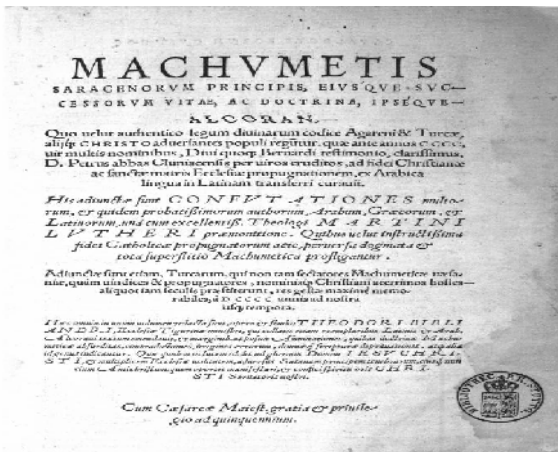 MACHVMETIS
SARACENORVM PRINCIPIS, EIVSQ'VE SVC-
CESSORVM VITAE, AC DOCTRINA, IPSEQ'VE
ALCORAN.
Quo uelut authentico legum diuinarum codice Agareni & Turcæ,
alijq; CHRISTO aduersantes populi regūtur. quæ ante annos CCCC,
uir multis nominibus, Diui quoq; Bernardi testimonio, clarissimus,
D. Petrus abbas Cluniacensis per uiros eruditos, ad fidei Christianæ
ac sanctæ matris Ecclesiæ propugnationem, ex Arabica
lingua in Latinam transferri curauit.
His adiunctæ sunt CONFVTATIONES multo-
rum, & quidem probatissimorum authorum, Arabum, Græcorum, &
Latinorum, unà cum excellentiss. Theologi MARTINI
LVTHERI præmonitione. Quibus uelut instructissima
fidei Catholicæ propugnatorum acie, peruersa dogmata &
tota superstitio Machumetica profligantur.
Adiunctæ sunt etiam, Turcarum, qui non tam sectatores Machumeticæ uæsa-
niæ, quàm uindices & propugnatores, nominisq; Christiani acerrimos hostes
aliquot iam seculis præstiterunt, res gestæ maximè memo-
rabiles, à DCCCC annis ad nostra
usq; tempora.
Hæc omnia in unum uolumen redacta sunt, opera & studio THEODORI BIBLI
ANDRI, Ecclesiæ Tigurinæ ministri, qui collatis etiam exemplaribus Latinis & Arab.
Cum Cæsareæ Maiest. gratia & priuile-
gio ad quinquennium.